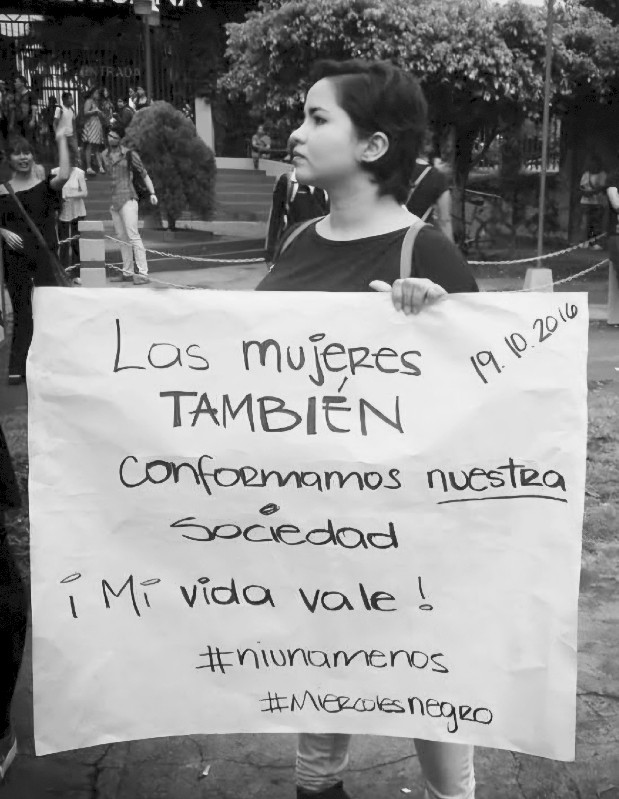 ENTRADA
19.10.2016
Las mujeres
TAMBIÉN
conformamos nuestra
sociedad
¡Mi vida vale!
#niunamenos
#Miercolesnegro